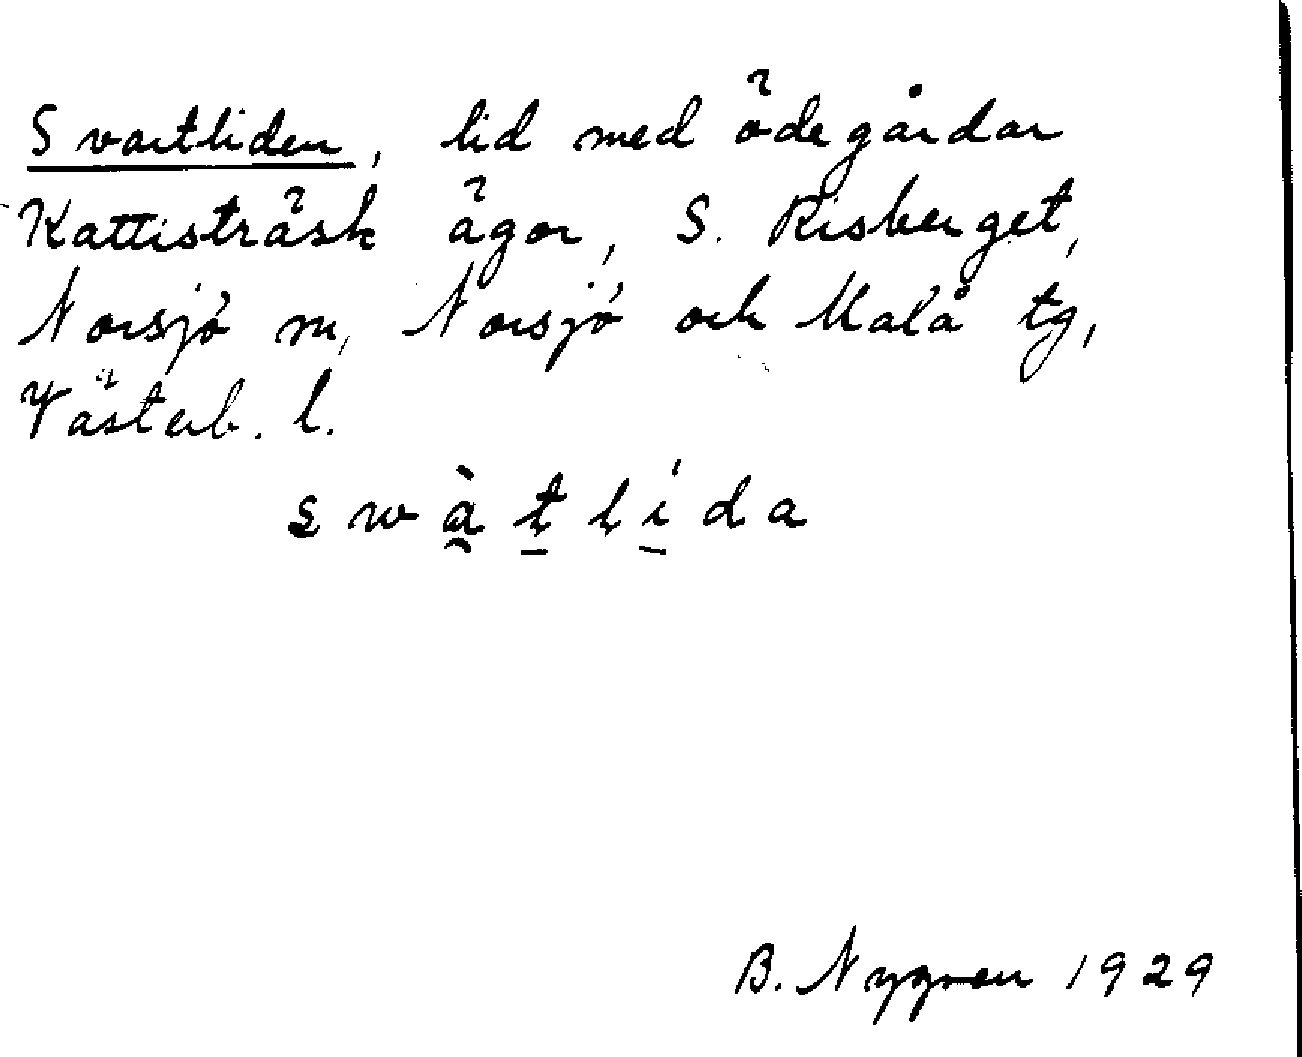 Svartliden, lid med ödegårdar
Kattisträsk ägor, S. Risberget,
Norsjö sn, Norsjö och Malå tg,
Västerb. l.
swà̯t̠lí̠da
B. Nygren 1929